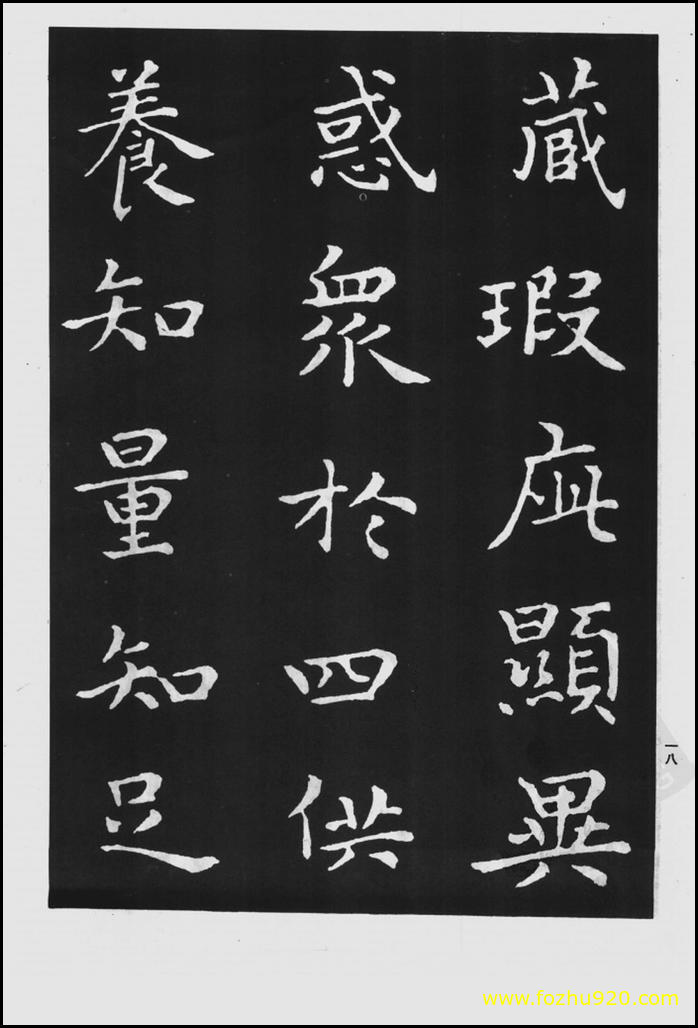 蔵瑕疵顯異
惑衆於四供
養知量知足
一八
www.fozhu920.com